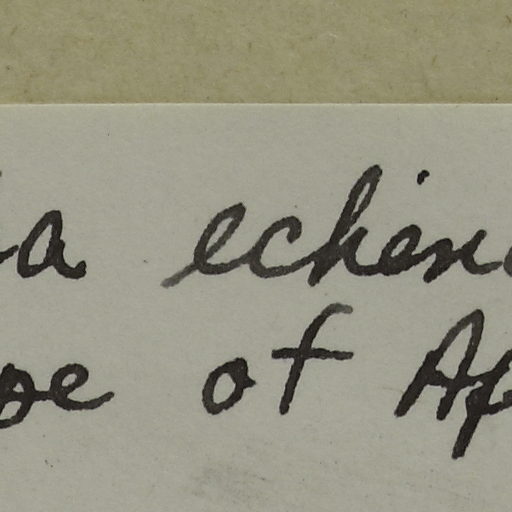 a echen
pe of Ap